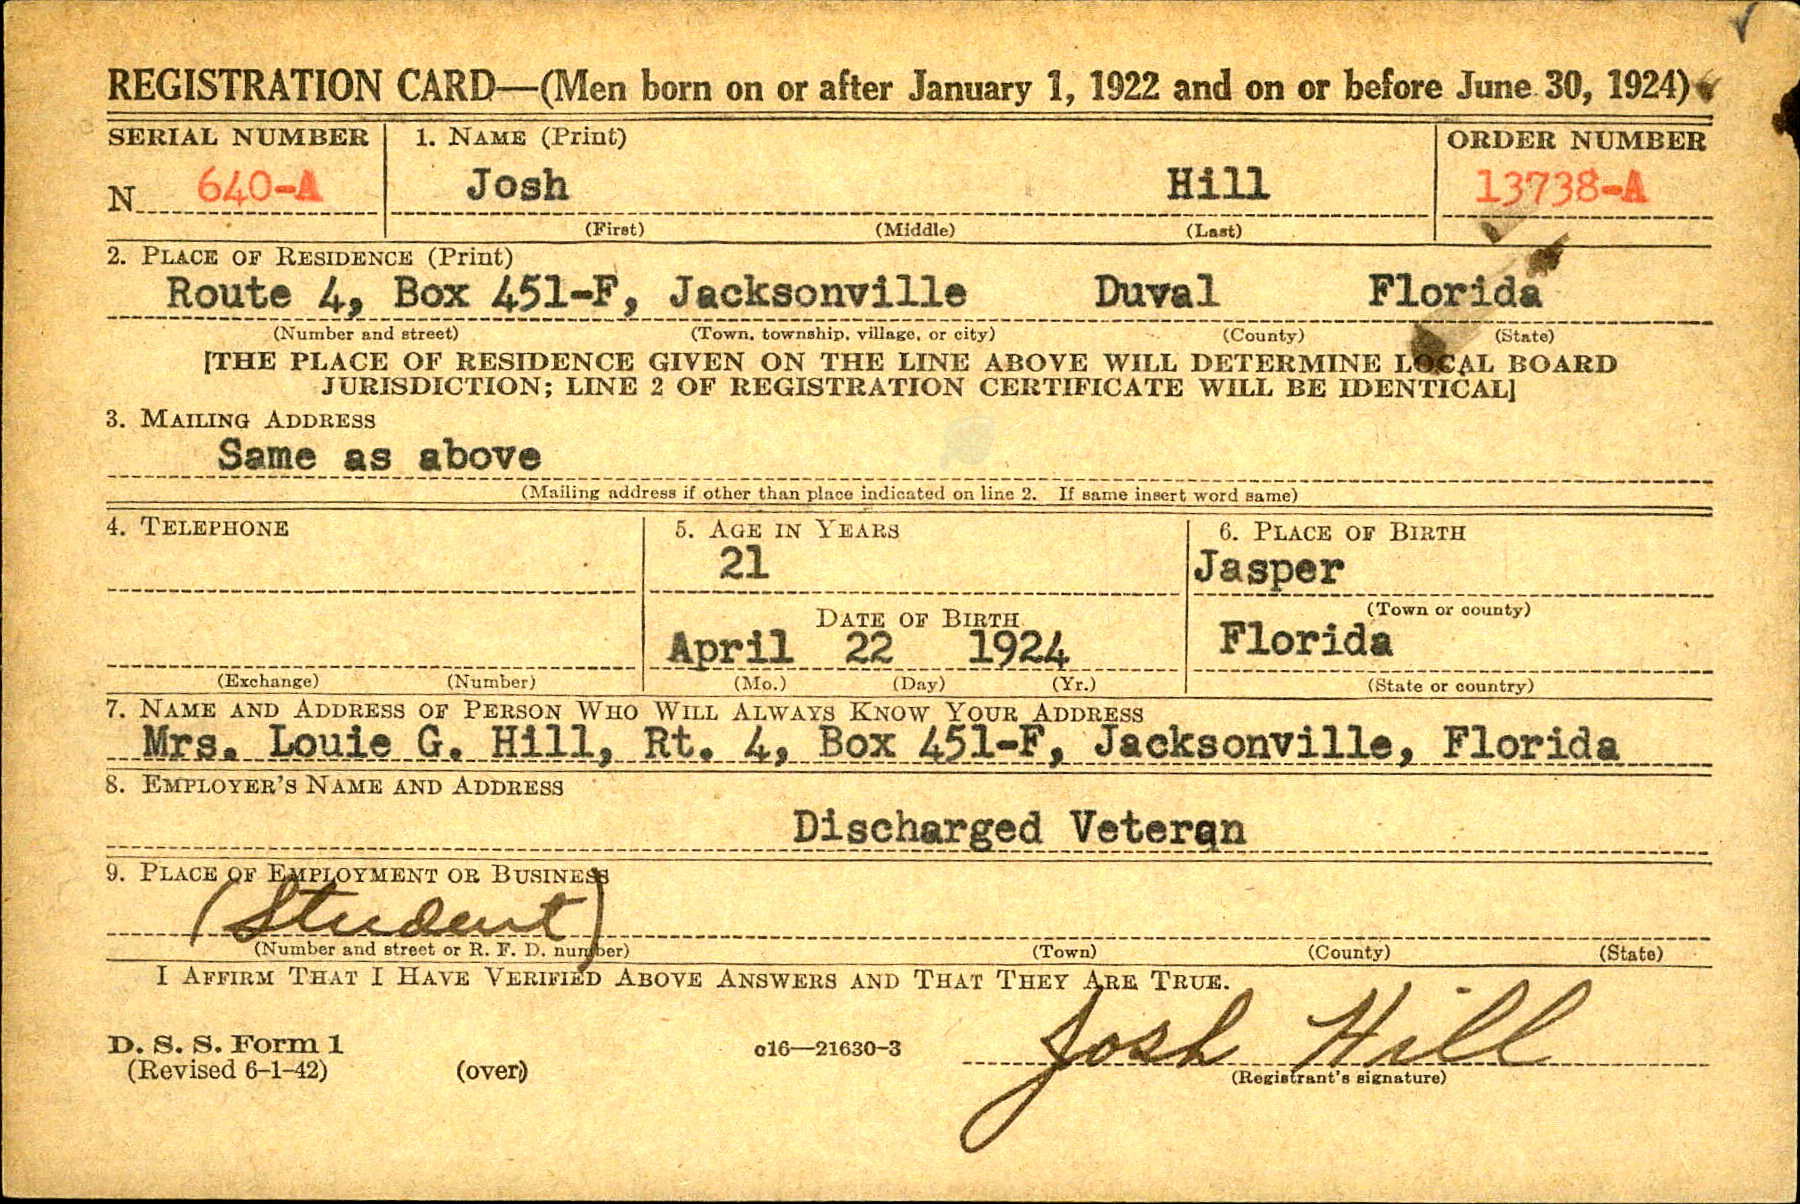 REGISTRATION CARD—(Men born on or after January 1, 1922 and on or before June 30, 1924)
SERIAL NUMBER 1. NAME (Print) ORDER NUMBER
N 640-A Josh Hill 13738-A
(First) (Middle) (Last)
2. PLACE OF RESIDENCE (Print)
Route 4, Box 451-F, Jacksonville Duval Florida
(Number and street) (Town, township, village, or city) (County) (State)
[THE PLACE OF RESIDENCE GIVEN ON THE LINE ABOVE WILL DETERMINE LOCAL BOARD
JURISDICTION; LINE 2 OF REGISTRATION CERTIFICATE WILL BE IDENTICAL]
3. MAILING ADDRESS
Same as above
(Mailing address if other than place indicated on line 2. If same insert word same)
4. TELEPHONE 5. AGE IN YEARS 6. PLACE OF BIRTH
21 Jasper
(Town or county)
DATE OF BIRTH
April 22 1924 Florida
(Exchange) (Number) (Mo.) (Day) (Yr.) (State or country)
7. NAME AND ADDRESS OF PERSON WHO WILL ALWAYS KNOW YOUR ADDRESS
Mrs. Louie G. Hill, Rt. 4, Box 451-F, Jacksonville, Florida
8. EMPLOYER'S NAME AND ADDRESS
Discharged Veteran
9. PLACE OF EMPLOYMENT OR BUSINESS
(Student)
(Number and street or R. F. D. number) (Town) (County) (State)
I AFFIRM THAT I HAVE VERIFIED ABOVE ANSWERS AND THAT THEY ARE TRUE.
Josh Hill
D. S. S. Form 1 c16—21630-3
(Revised 6-1-42) (over) (Registrant's signature)